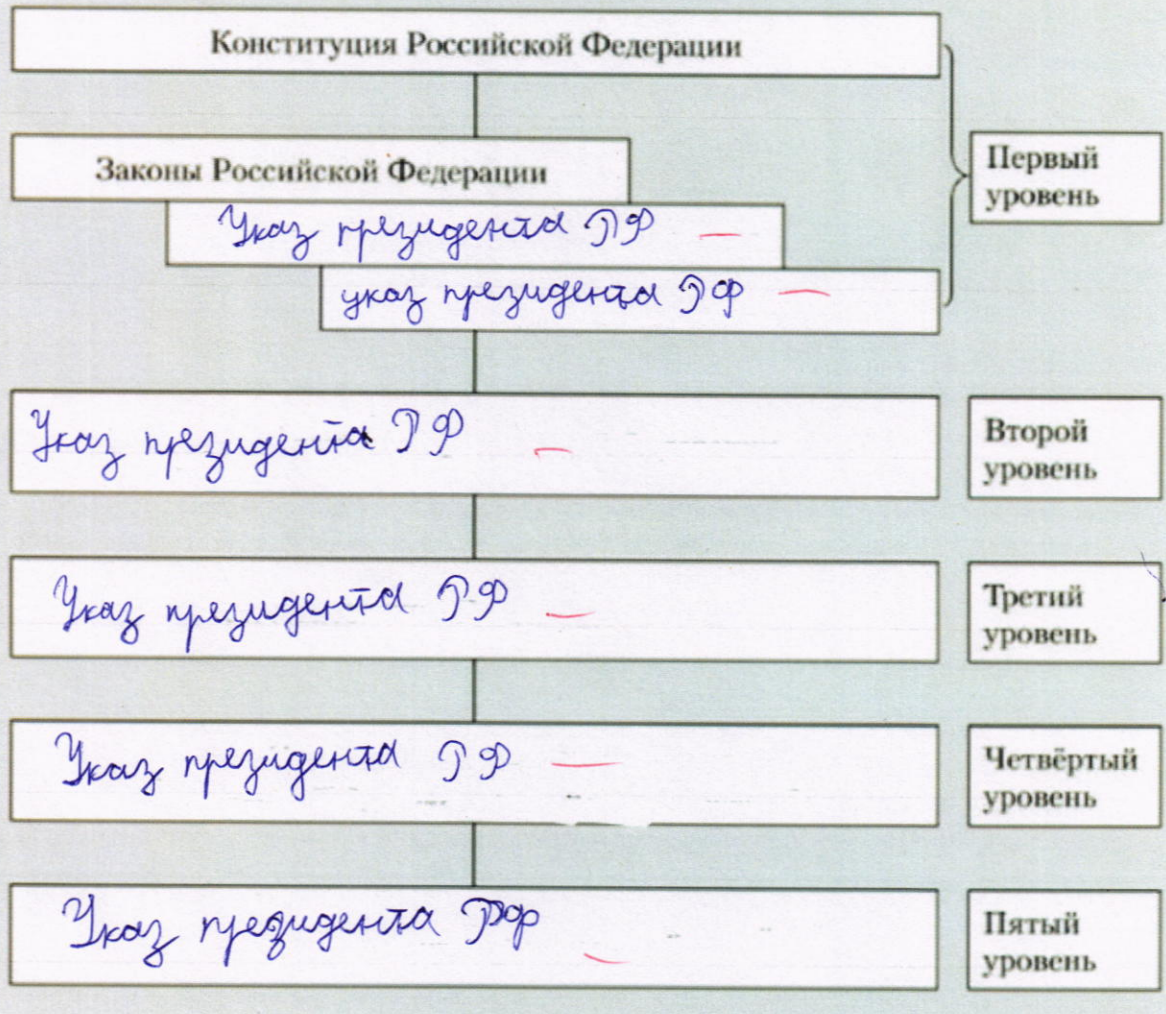 Конституция Российской Федерации
Законы Российской Федерации
Первый
уровень
Указ президента РФ —
указ президента РФ —
Указ президента РФ —
Второй
уровень
Указ президента РФ —
Третий
уровень
Указ президента РФ —
Четвёртый
уровень
Указ президента РФ —
Пятый
уровень